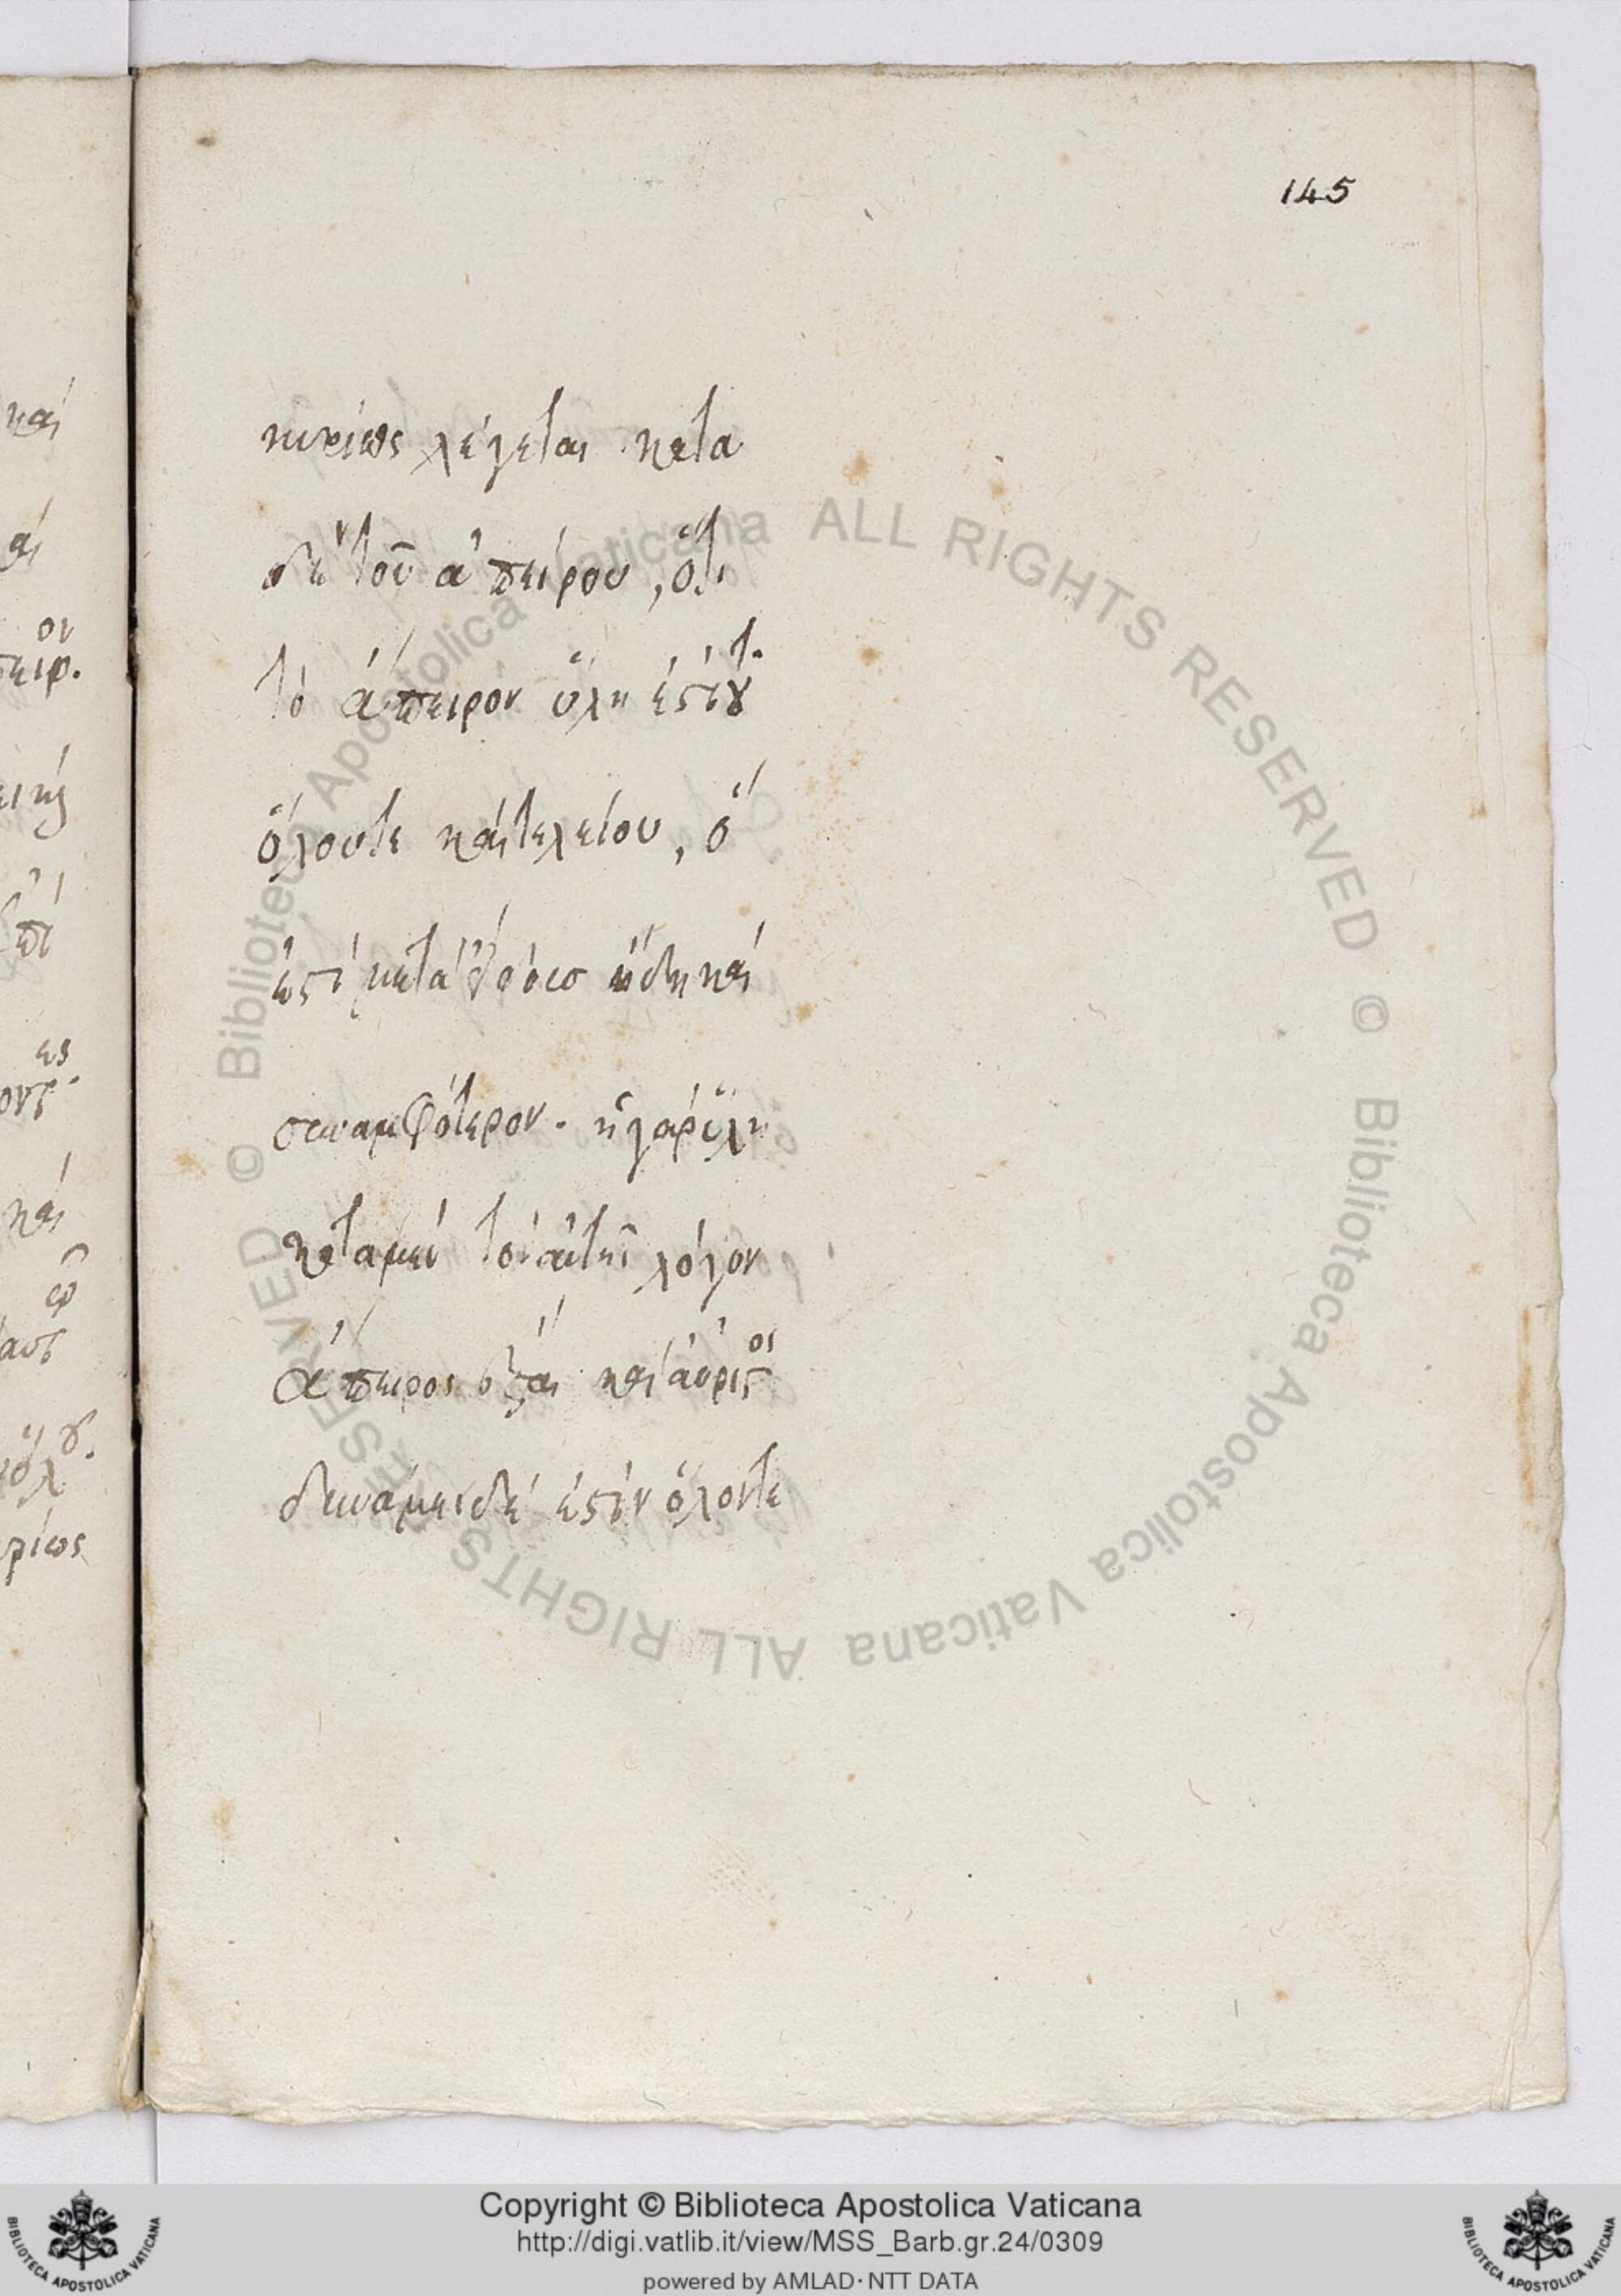 145
κυρίως λέγεται κατα
δὲ τοῦ ἀπείρου, ὅτι
τὸ ἄπειρον ὕλη ἐστὶ τοῦ
ὅλου τε καὶ τελείου, ὅ
ἐστι μετὰ εἴδους ἤδη καὶ
συναμφότερον. ἡ γὰρ ὕλη
κατα μὲν τὸν αὐτῆς λόγον
ἄπειρος οὖσα καὶ ἀόριστος
δυνάμει δέ ἐστιν ὅλον τε
καὶ
αι
καὶ
ρίως
© Biblioteca Apostolica Vaticana ALL RIGHTS RESERVED © Biblioteca Apostolica Vaticana ALL RIGHTS RESERVED
Copyright © Biblioteca Apostolica Vaticana
http://digi.vatlib.it/view/MSS_Barb.gr.24/0309
powered by AMLAD · NTT DATA
BIBLIOTECA APOSTOLICA VATICANA
BIBLIOTECA APOSTOLICA VATICANA